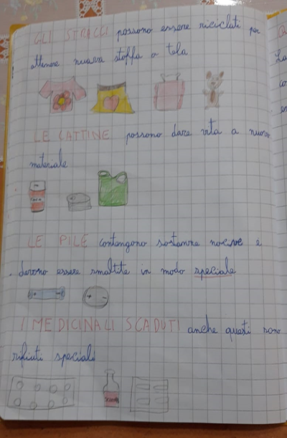 GLI STRACCI possono essere riciclati per
ottenere nuova stoffa o tela
LE LATTINE possono dare vita a nuovo
materiale
LE PILE contengono sostanze nocive e
devono essere smaltite in modo speciale
I MEDICINALI SCADUTI anche questi sono
rifiuti speciali